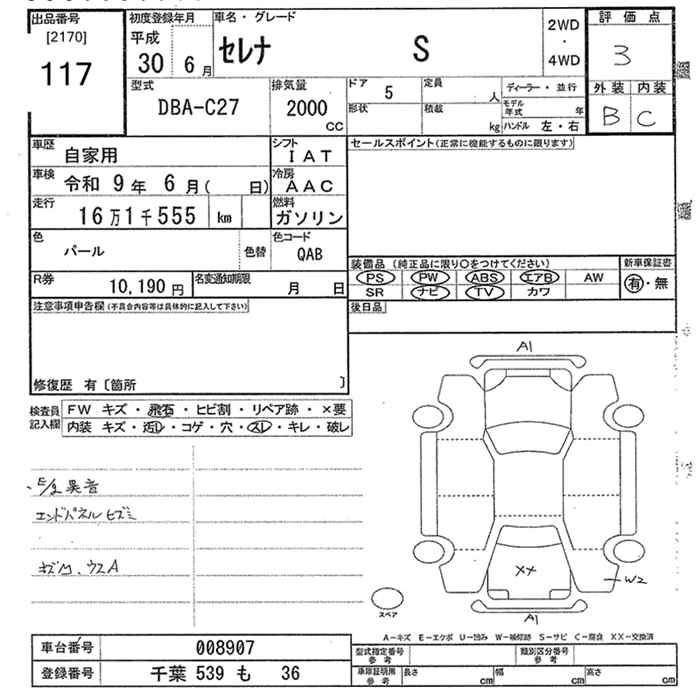 出品番号
[2170]
117
初度登録年月
平成
30 6月
車名・グレード
セレナ S
2WD
・
4WD
評価点
3
外装 内装
B C
型式
DBA-C27
排気量
2000
CC
ドア 5
定員 人
ディーラー・並行
形状
積載 kg
モデル年式 年
ハンドル 左・右
車歴
自家用
シフト
IAT
車検
令和 9年 6月( 日)
冷房
AAC
走行
16万1千555 km
燃料
ガソリン
色
パール
色替
色コード
QAB
R券
10,190円
名変通知期限
月 日
セールスポイント(正常に機能するものに限ります)
装備品 (純正品に限り〇をつけてください)
新車保証書
PS PW ABS エアB AW
SR ナビ TV カワ
有・無
後日品
注意事項申告欄(不具合内容等は具体的に記入して下さい)
修復歴 有〔箇所 〕
検査員記入欄
FW キズ・飛石・ヒビ割・リペア跡・×要
内装 キズ・汚レ・コゲ・穴・スレ・キレ・破レ
E/g異音
エンドパネルヒズミ
キズM、ウスA
A1
XX
W2
A1
スペア
A−キズ E−エクボ U−凹み W−補修跡 S−サビ C−腐食 XX−交換済
車台番号
008907
登録番号
千葉 539 も 36
型式指定番号
参考
類別区分番号
参考
車庫証明用
参考
長さ cm
幅 cm
高さ cm